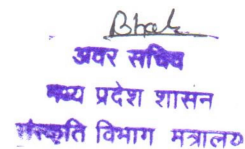 अवर सचिव
मध्य प्रदेश शासन
संस्कृति विभाग मंत्रालय